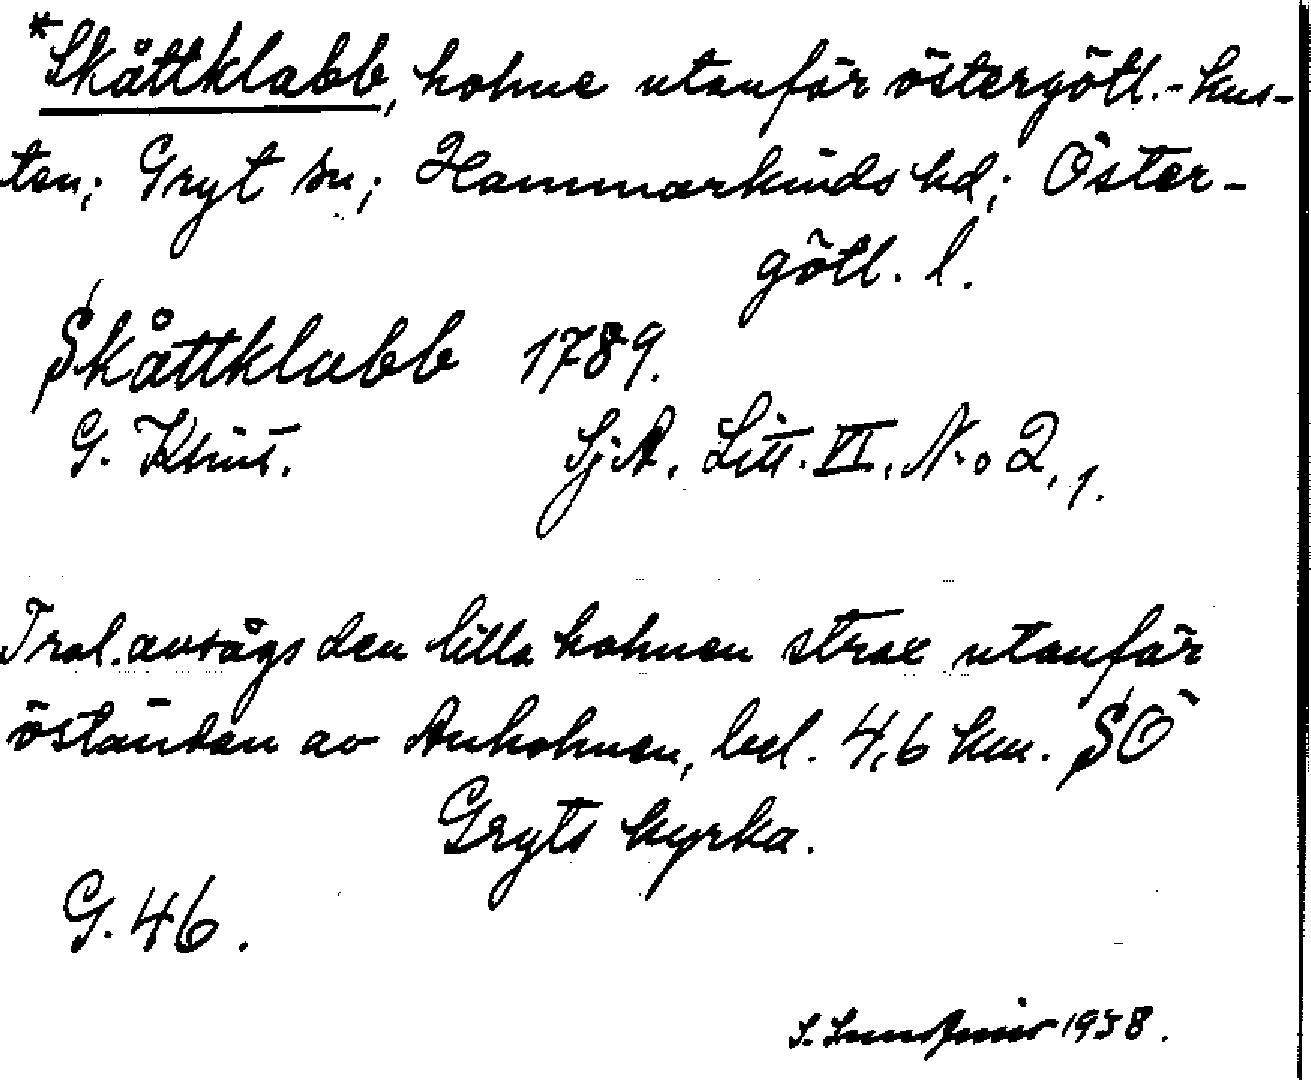 *Skåttklabb, holme utanför östergötl.-kus-
ten; Gryt sn; Hammarkinds hd; Öster-
götl. l.
Skåttklabb 1789.
G. Klint. SjA, Litt. VI, N:o 2, 1.
Trol. avsågs den lilla holmen strax utanför
öständen av Anholmen, bel. 4,6 km. SÖ
Gryts kyrka.
G. 46.
S. 1938.